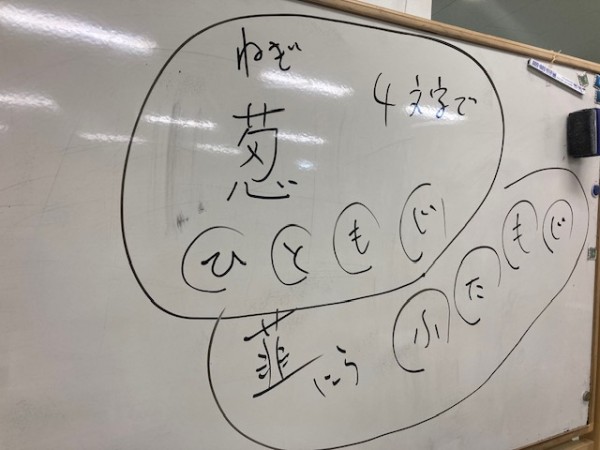 ねぎ
4文字で
葱
ひともじ
韮 にら
ふたもじ